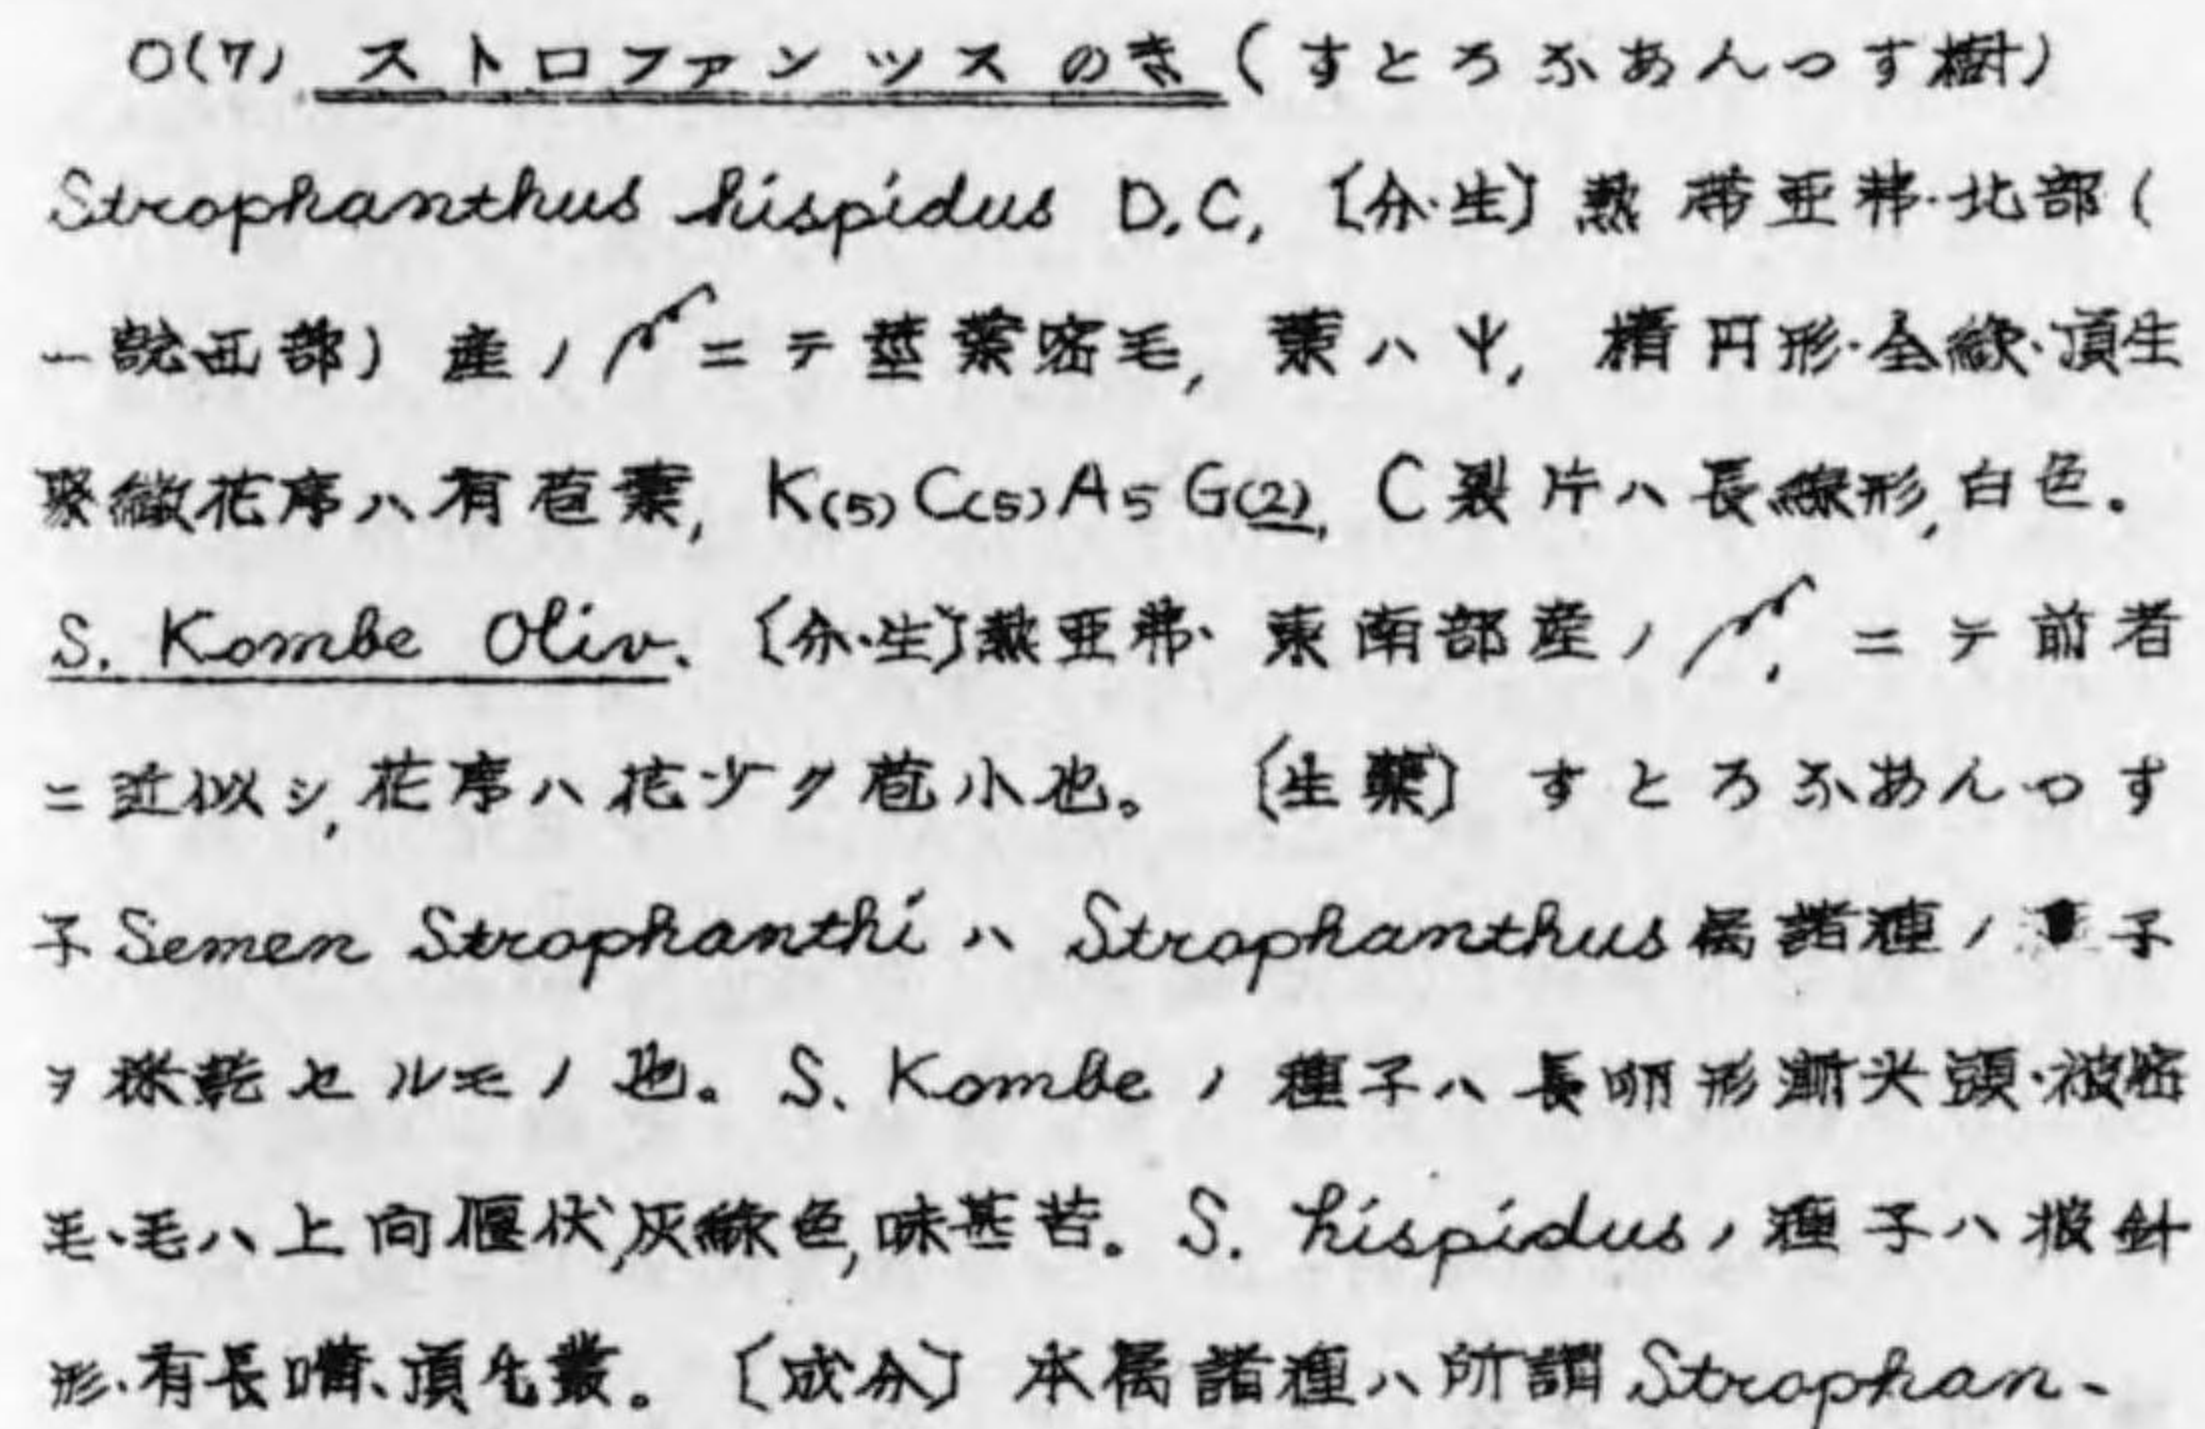 ○(7) ストロファンツスのき(すとろふあんつす樹)
Strophanthus hispidus D.C, 〔分・生〕熱帯亜弗・北部(
一説西部)産ノ ニテ茎葉密毛, 葉ハ 楕円形・全縁・頂生
聚繖花序ハ有苞葉, K(5) C(5) A5 G(2), C裂片ハ長線形,白色。
S. Kombe Oliv. 〔分・生〕熱亜弗・東南部産ノ ニテ前者
ニ近似シ,花序ハ花少ク苞小也。〔生薬〕すとろふあんつす
子 Semen Strophanthi ハ Strophanthus属諸種ノ 子
ヲ採乾セルモノ也。S. Kombeノ種子ハ長卵形漸尖頭・被密
毛・毛ハ上向偃伏,灰緑色,味甚苦。S. hispidusノ種子ハ披針
形・有長嘴、頂毛叢。〔成分〕本属諸種ハ所謂Strophan-